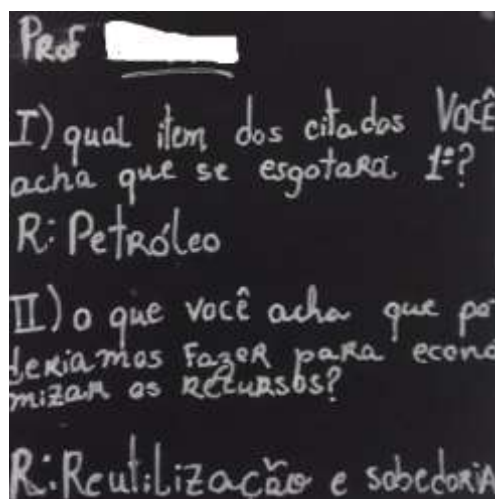 Prof
I) qual item dos citados VOCÊ
acha que se esgotara 1º?
R: Petróleo
II) o que você acha que po
deriamos fazer para econo
mizar os recursos?
R: Reutilização e sabedoria